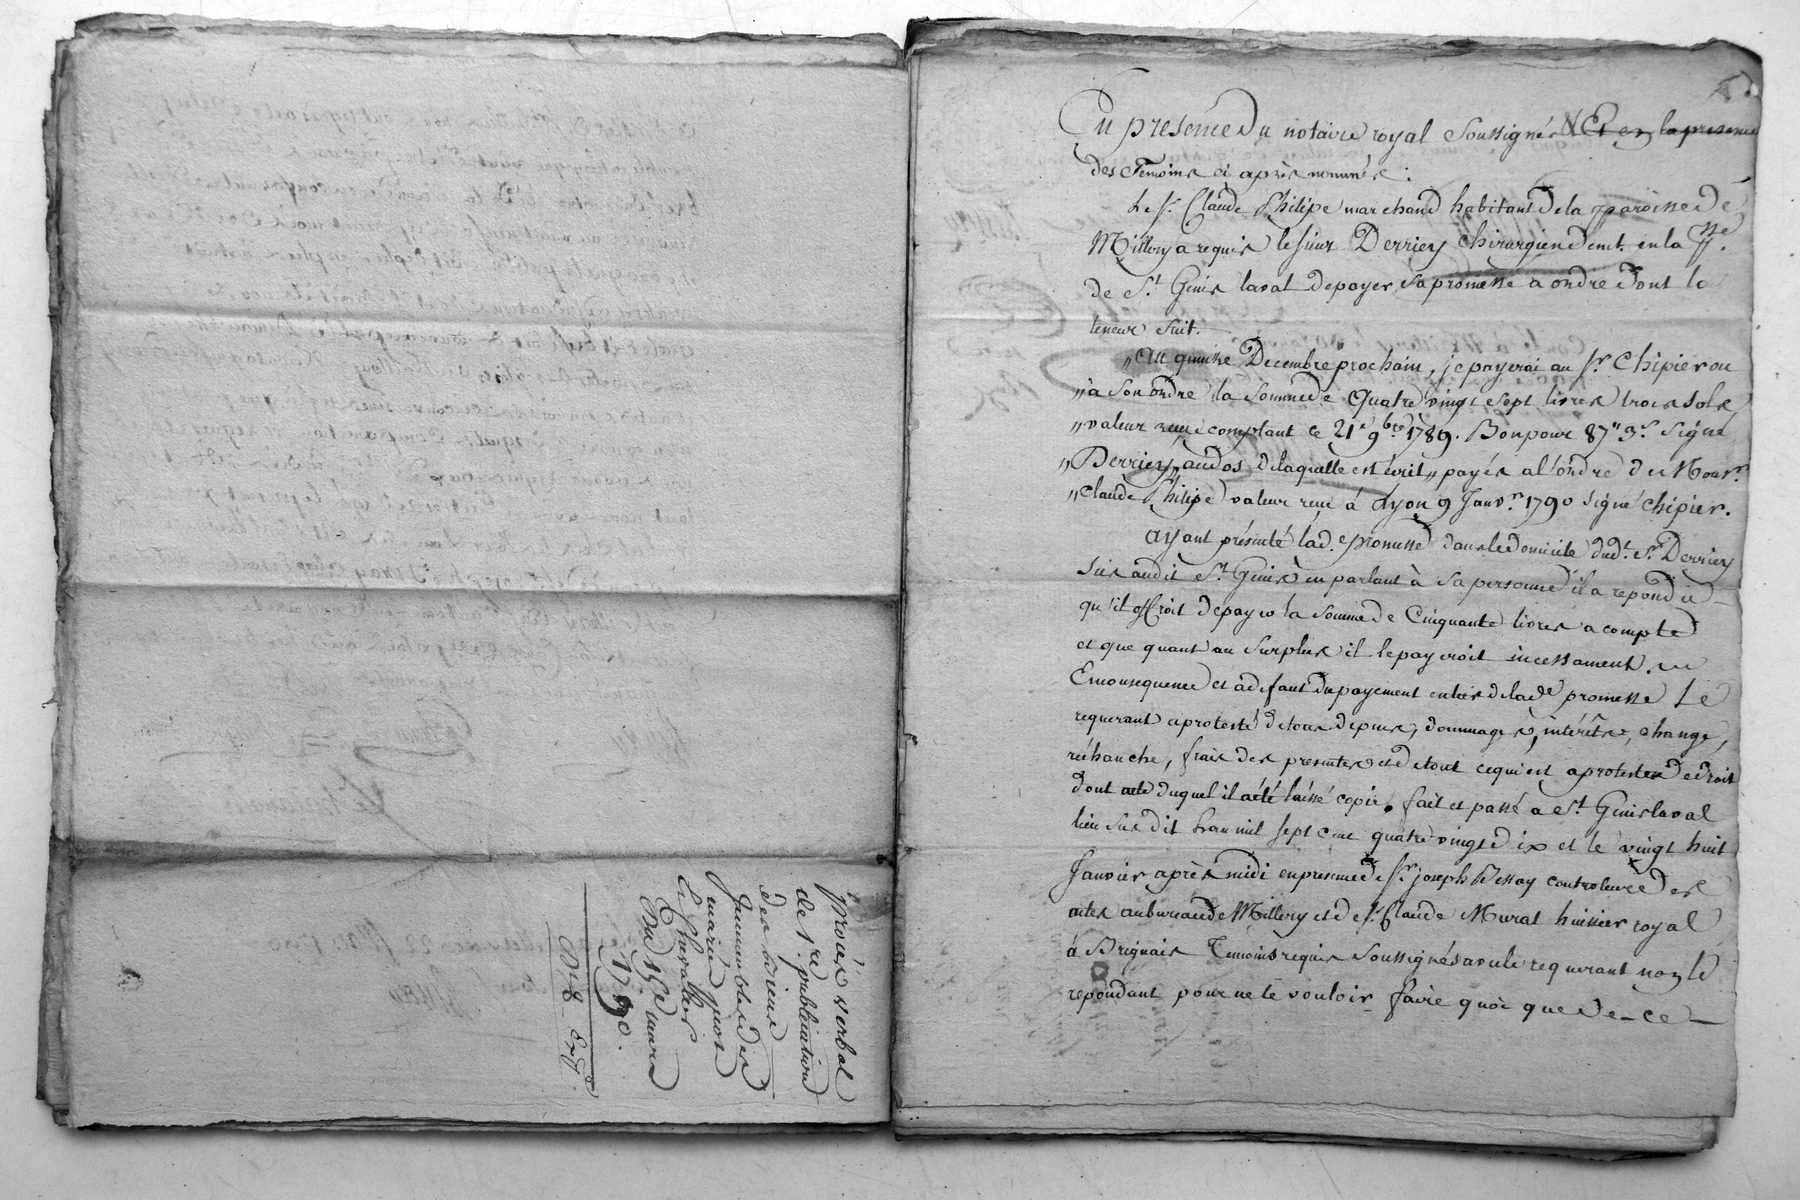 Procès verbal
de 1re. publication
des biens
Immeubles des
mariés quos
Chevallier
Du 15e mars
1790.
En presence du notaire royal soussignés Et en la presence
des Temoins ci après nommés :
Le Sr. Claude Philipe marchand habitant de la paroisse de
Millery a requis le sieur Derriey chirurgien demt. en la psse.
de St. Genis laval de payer sa promesse a ordre dont la
teneur suit.
„ Au quinze Decembre prochain, je payerai au Sr. Chipier ou
„ à son ordre la somme de quatre vingt sept livres trois sols,
„ valeur reçue comptant ce 21e. 9bre 1789. Bon pour 87" 3s. signé
„ Derriey, au dos de laquelle est écrit „ payés a l'ordre de Monsr.
„ Claude Philipe valeur reçue à Lyon 9 Janvr. 1790 signé Chipier.
Ayant présenté lad. promesse dans le domicile dudt. Sr. Derriey
sis audit St. Genis en parlant à sa personne il a repondu
qu'il offroit de payer la somme de Cinquante livres a compte
et que quant au surplus il le payeroit incessament. en
Consequence et a defaut du payement entier de lade. promesse Le
requerant a protesté de tous depens, dommages, intérêts, change,
réchange, frais des presentes et de tout ce qui est a protester de droit
dont acte duquel il a été laissé copie. fait et passé a St. Genis laval
lieu susdit L'an mil sept cent quatre vingt dix et le vingt huit
Janvier après midi en presence de Sr. Joseph Dessay controleur des
actes au bureau de Millery et de Sr. Claude Murat huissier royal
à Brignais Témoins requis soussignés avec le requerant non le
repondant pour ne le vouloir faire quoi que de - ce -